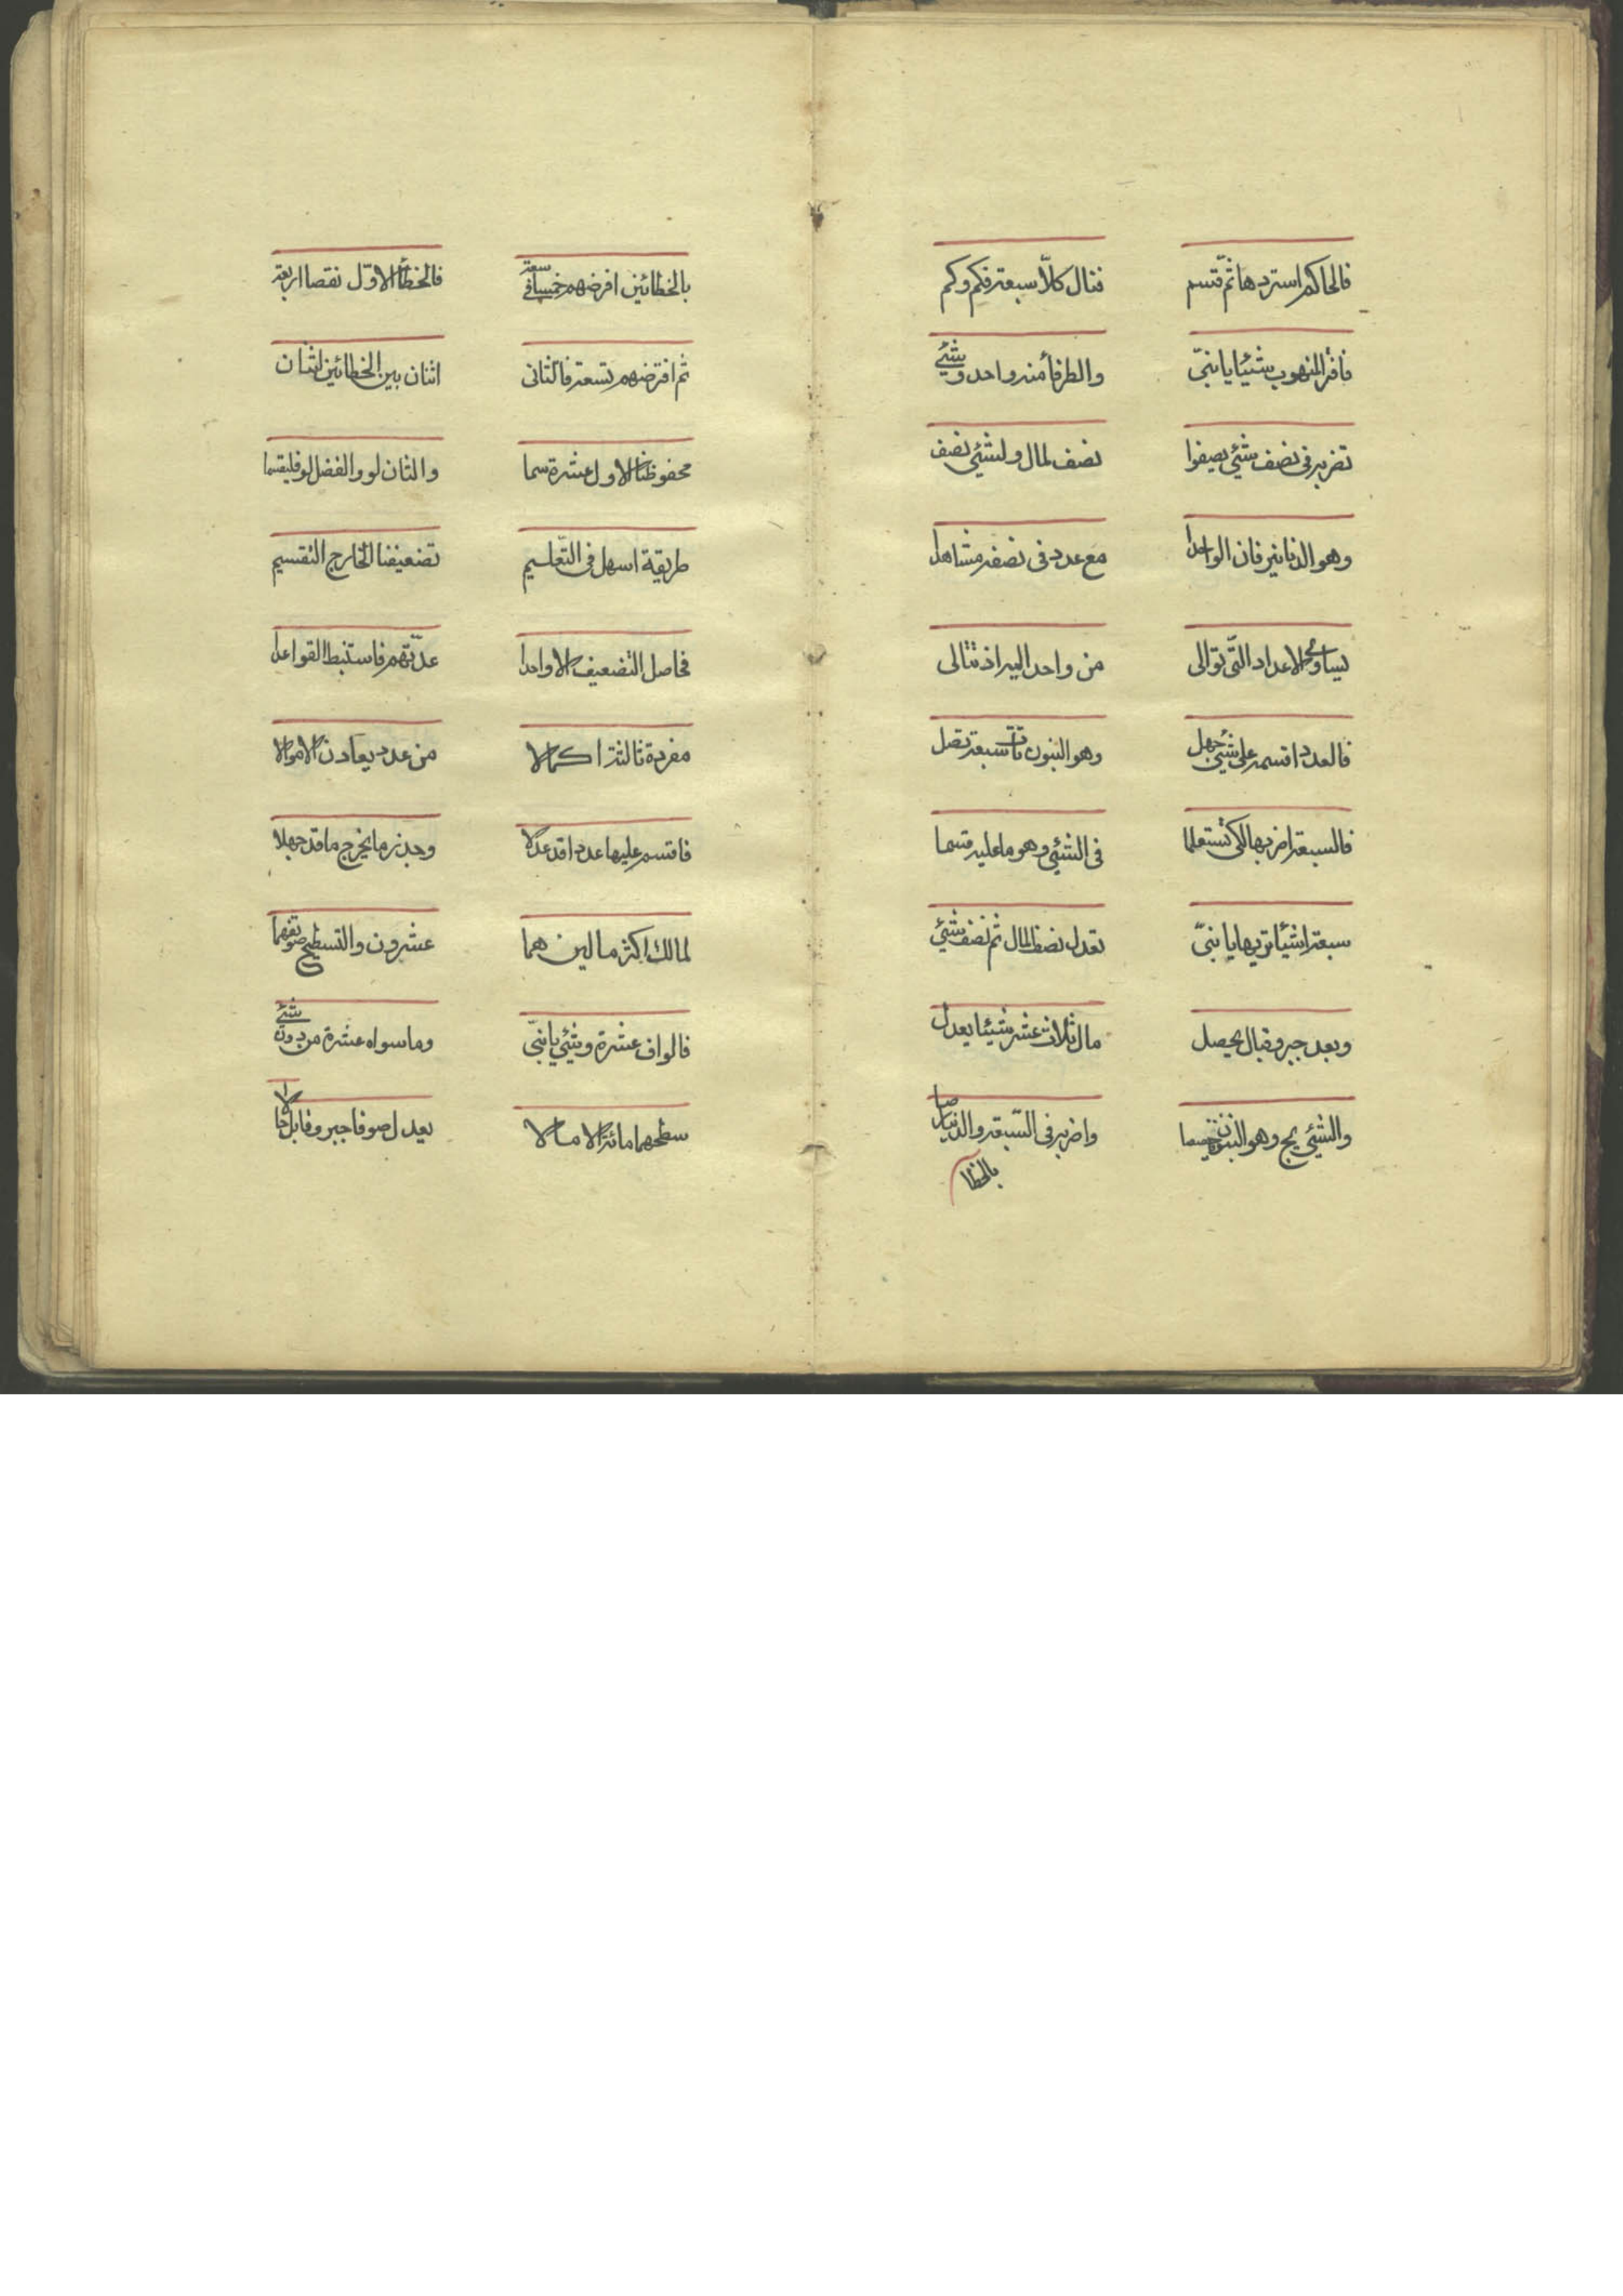 فالحاكم استردها ثم قسم فنال كلاّ سبعة فكم وكم
فافر المنهوب شيئا يا نبىّ والطرفأ منه واحد وشيئ
تضربه فى نصف شيئ يصيفوا نصف لمال ولشيئ نصف
وهو الدنانير فان الواحدا مع عدد فى نصفه مشاهدا
يساوى الاعداد التى توالى من واحد اليه اذ تتالى
فالعدد اقسمه على شيئ جهل وهو البنون تات سبعة تصل
فالسبعة اضربها لكى تستعلما فى الشيئ وهو ما عليه قسما
سبعة اشيأ تريها يا نبىّ تعدل نصف المال ثم نصف شيئ
وبعد جبر وقبال يحصل مال ثلاث عشر شيئا يعدل
والشيئ يج وهو البنون واضربه فى السّبعة والدنيا صا
بالخطا
بالخطائين افرضهم خمسا فى سبعة فالخطأ الاوّل نقصا اربعة
ثم افترضهم تسعة فالثانى اثنان بين الخطائين اثنان
محفوظنا الاول عشرة سما والثان لو والفضل لو فليقسما
طريقة اسهل فى التعليم تضعيفنا الخارج التقسيم
فحاصل التضعيف الا واحدا عدّتهم فاستنبط القواعدا
مفردة ثالثة اكمالا من عدد يعادن الاموالا
فاقسم عليها عددا قد عدلا وجذر ما يخرج ما قد جهلا
لمالك اكثر مالين هما عشرون والتسطيح صو يقهما
فالواف عشرة وشيئ يا نبىّ وما سواه عشرة من دون شيئ
سطحهما مائة الا مالا يعدل صو فاجبر وقابل حالا